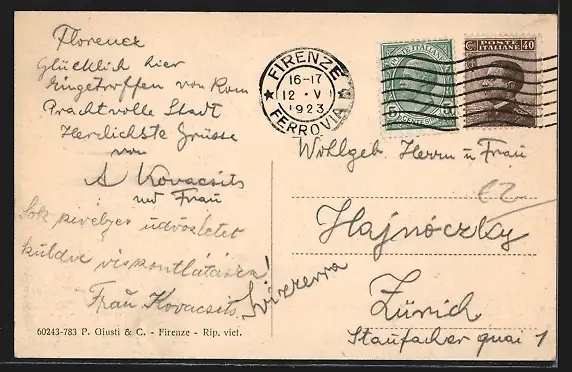 Florenz
Glücklich hier
eingetroffen von Rom
Prachtvolle Stadt
Herzlichste Grüsse
von
A Kovacsits
und Frau
Sok szivélyes üdvözletet
küldve viszontlátásra!
Frau Kovacsits
60243-783 P. Giusti & C. - Firenze - Rip. viet.
FIRENZE
16-17
12 · V
1923
FERROVIA
POSTE ITALIANE
5 CENTESIMI 5
POSTE ITALIANE
40
Wohlgeb. Herrn u Frau
Hajnóczky
Svizzera
Zürich
Staufacher quai 1